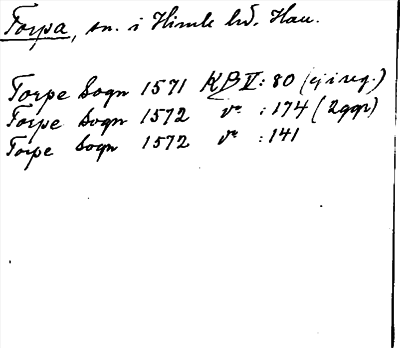 Torpa, sn. i Himle hd. Hall.
Torpe Sogn 1571 KB V: 80 (ej i reg.)
Torpe Sogn 1572 V: 174 (2 ggr)
Torpe Sogn 1572 V: 141